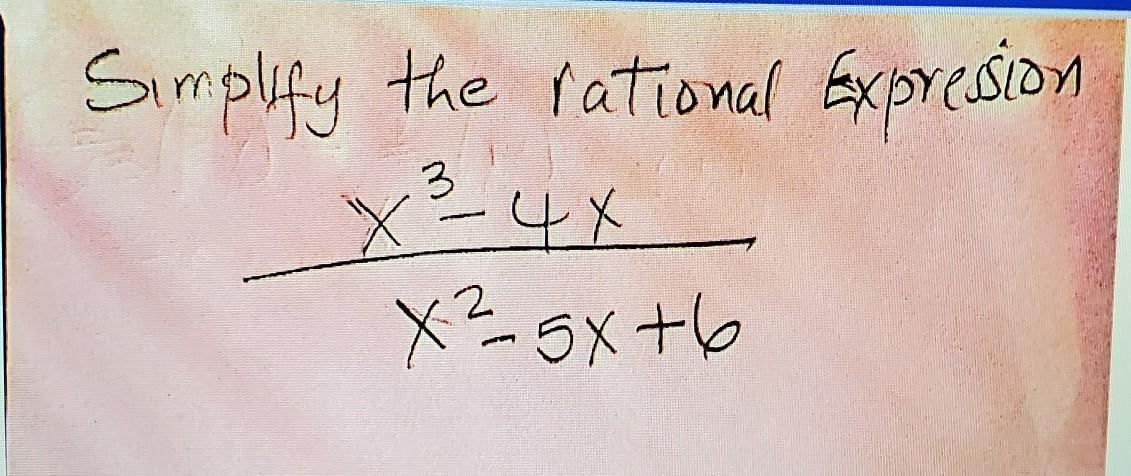 Simplify the rational Expression
x³ - 4x
x² - 5x + 6